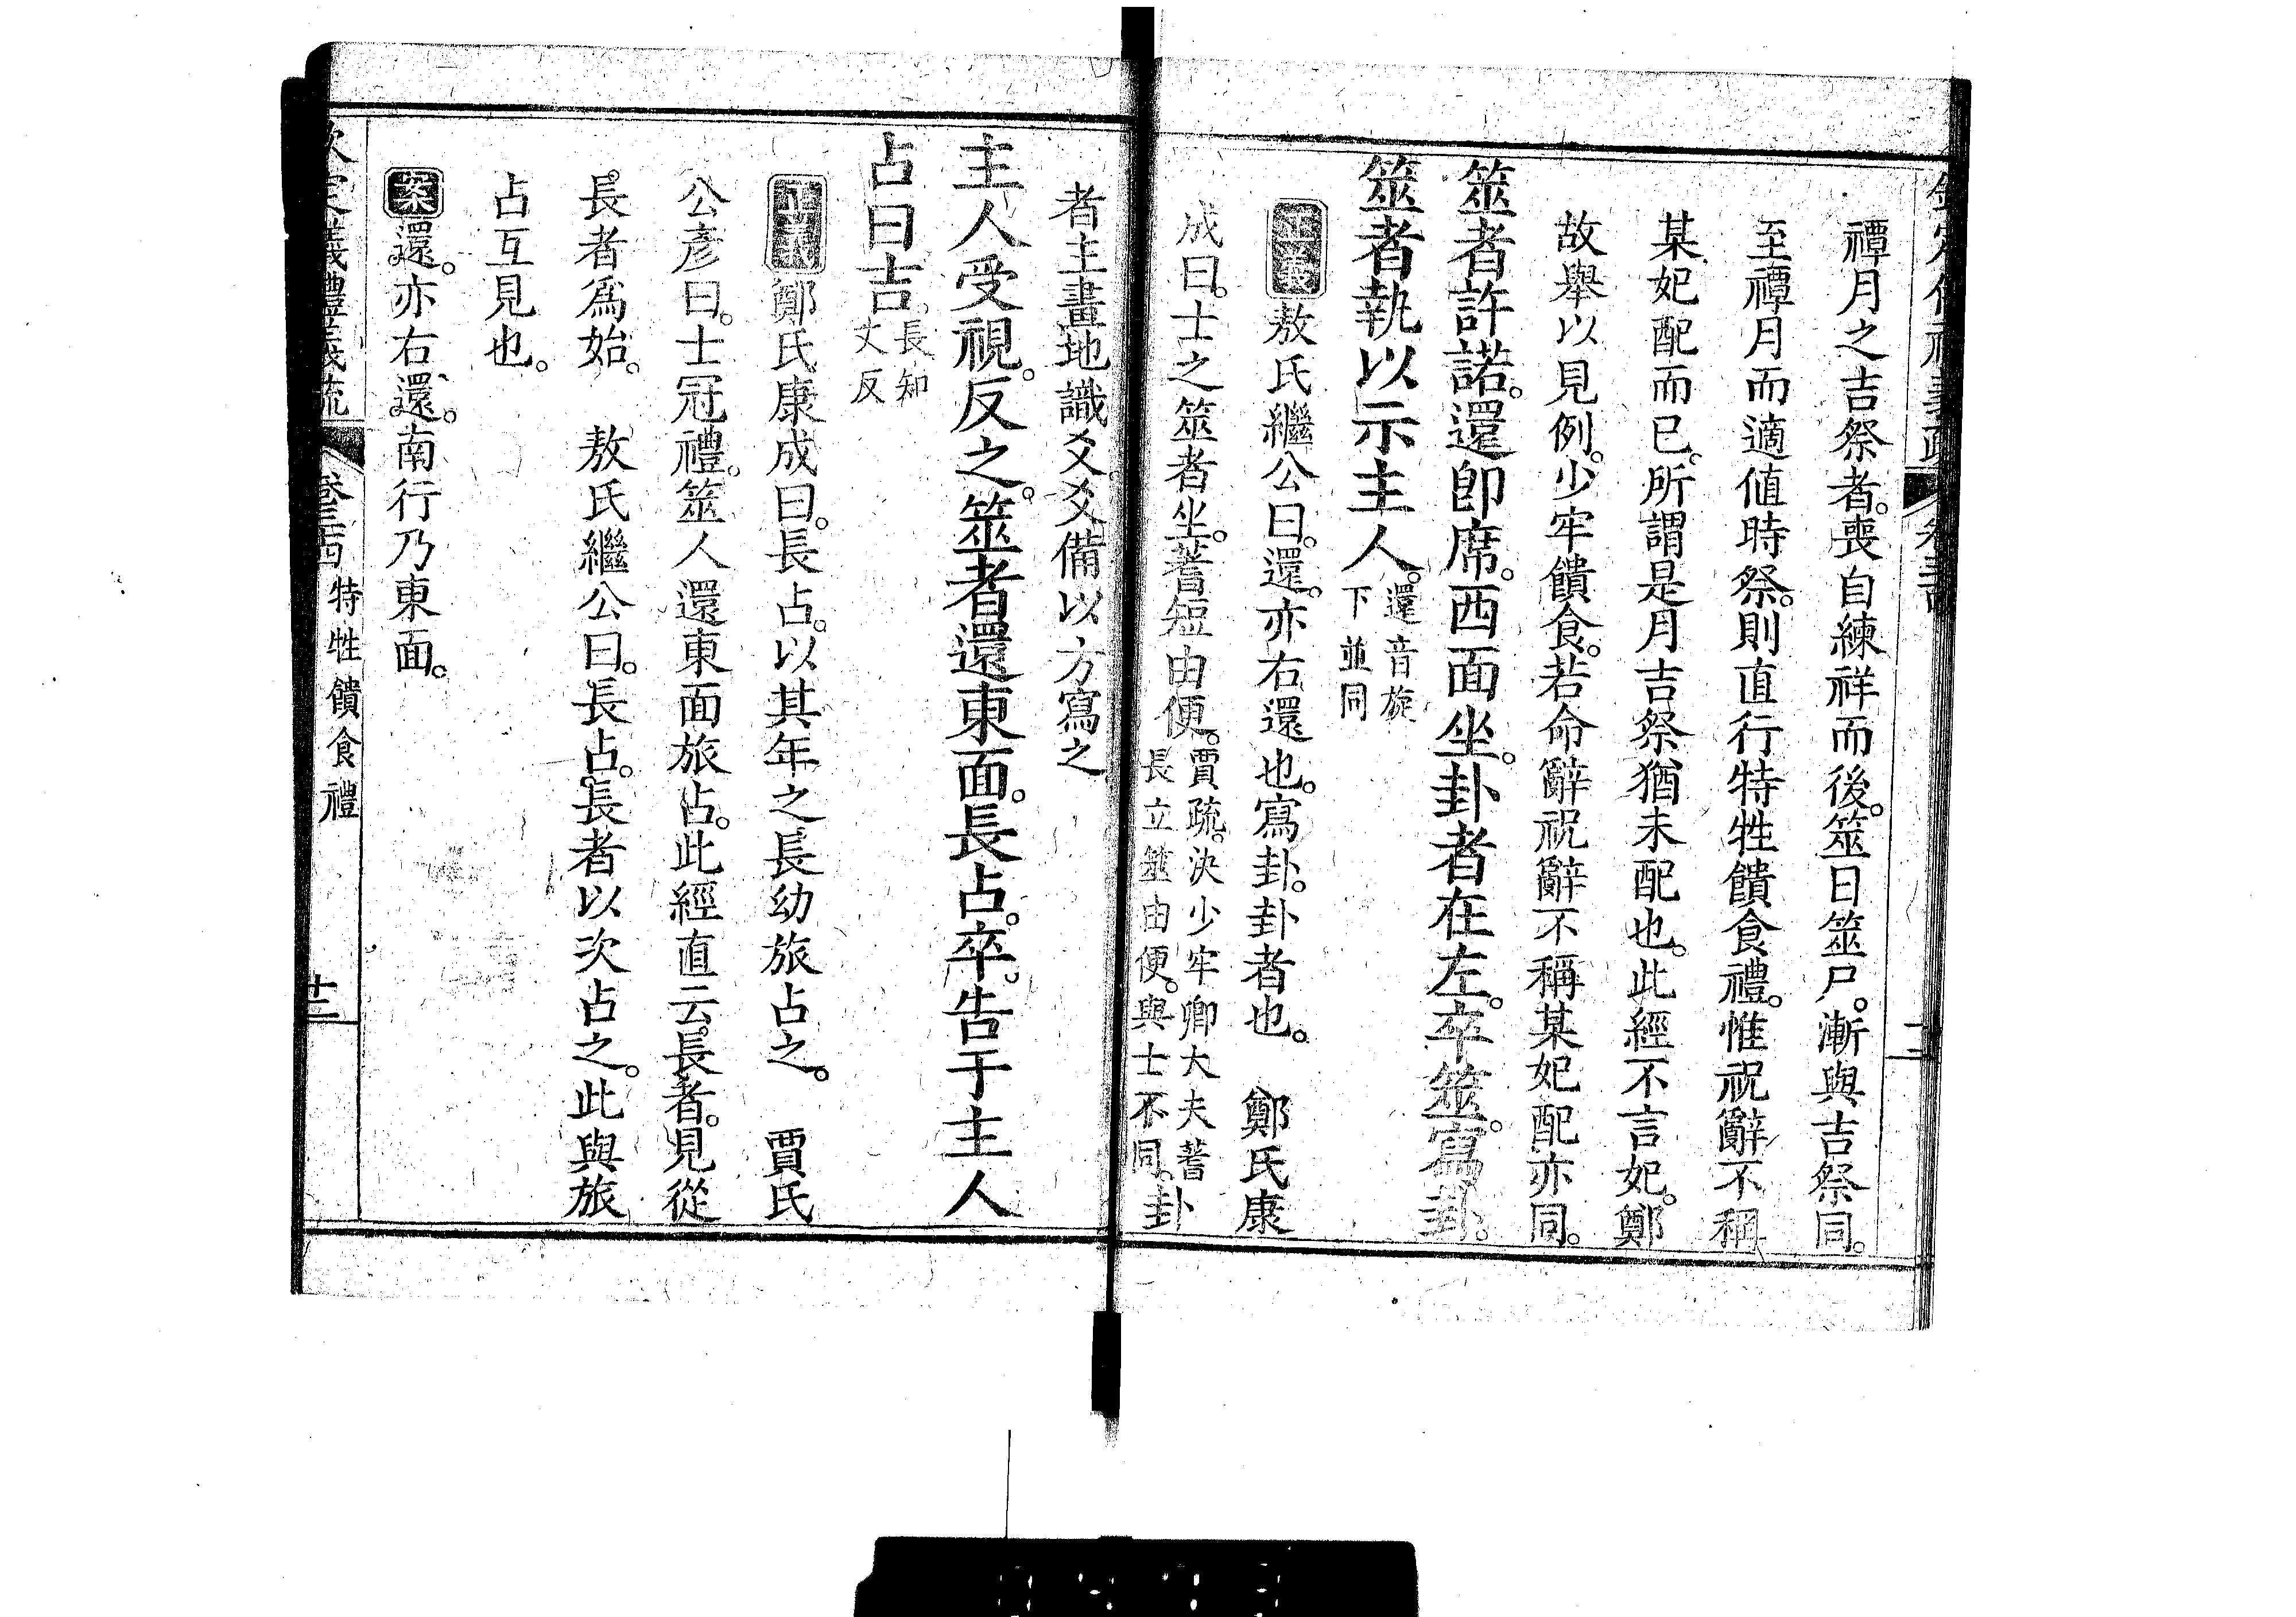 禫月之吉祭者。喪自練祥而後。筮日筮尸。漸與吉祭同。
至禫月而適値時祭。則直行特牲饋食禮。惟祝辭不稱
某妃配而已。所謂是月吉祭猶未配也。此經不言妃。鄭
故舉以見例。少牢饋食。若命辭祝辭不稱某妃配亦同。
筮者許諾。還卽席。西面坐。卦者在左。卒筮。寫卦。
筮者執以示主人。還音旋
下並同
正義敖氏繼公曰。還。亦右還也。寫卦。卦者也。 鄭氏康
成曰。士之筮者坐。蓍短由便。賈疏。決少牢卿大夫蓍
長立筮由便。與士不同。卦
者主畫地識爻。爻備以方寫之
主人受視。反之。筮者還東面。長占。卒。告于主人
占曰吉。長知
丈反
正義鄭氏康成曰。長占。以其年之長幼旅占之。 賈氏
公彥曰。士冠禮。筮人還東面旅占。此經直云。長者。見從
長者爲始。 敖氏繼公曰。長占。長者以次占之。此與旅
占互見也。
案還。亦右還。南行乃東面。
欽定儀禮義疏 卷三四 特牲饋食禮 十二